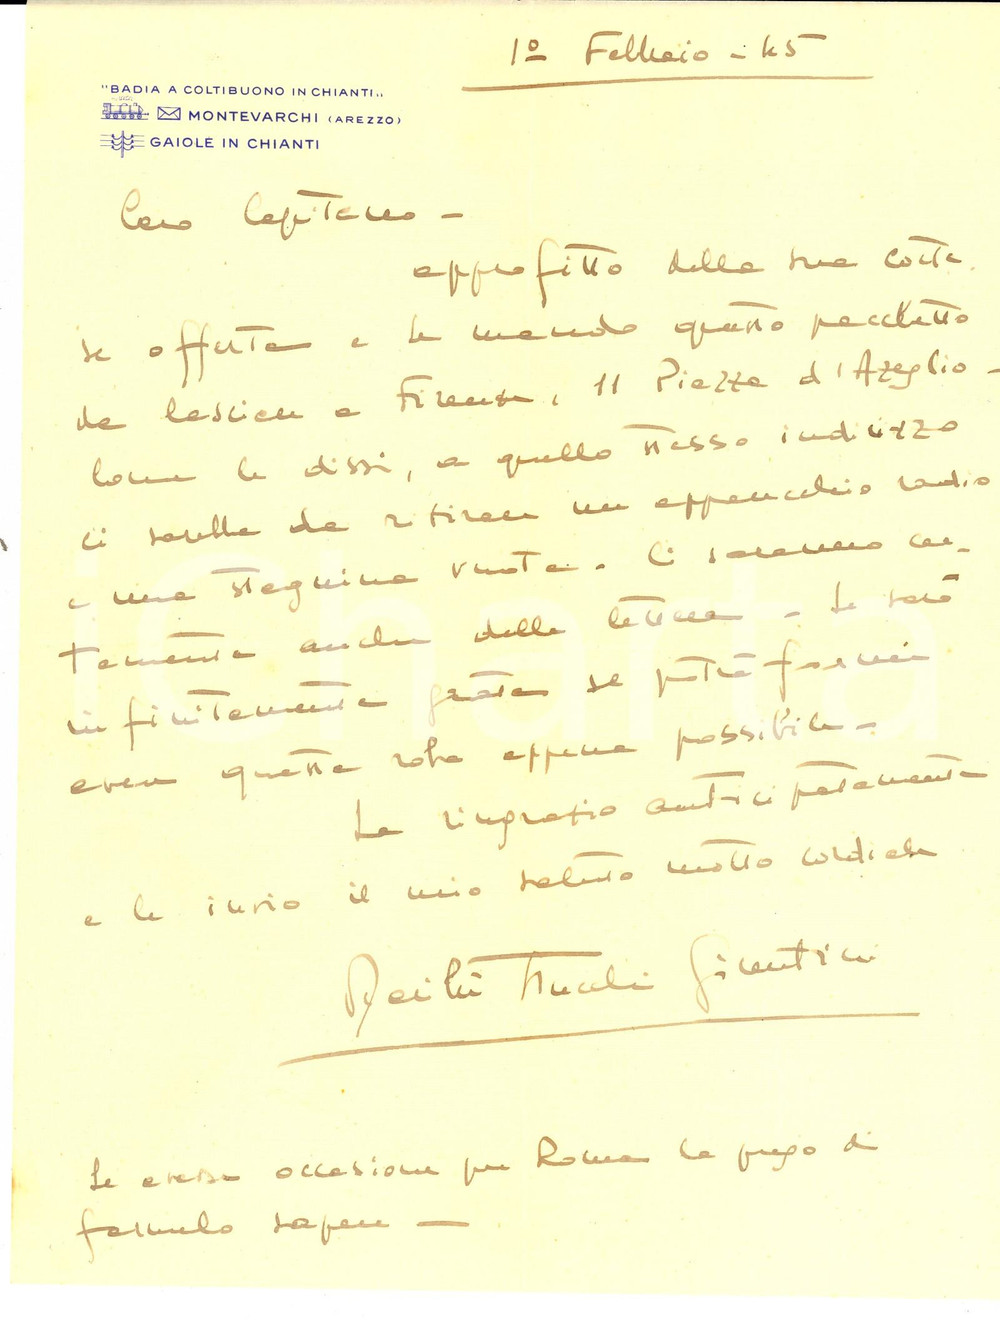 1º Febbraio - 45
"BADIA A COLTIBUONO IN CHIANTI"
MONTEVARCHI (AREZZO)
GAIOLE IN CHIANTI
Caro Capitano -
approfitto della sua corte
se offerta e le mando questo pacchetto
da lasciare a Firenze, 11 Piazza d'Azeglio -
Come le dissi, a quello stesso indirizzo
ci sarebbe da ritirare un apparecchio radio
e una stagnina vuota. Ci saranno cer-
tamente anche delle lettere - Le sarò
infinitamente grata se potrà farmi
avere questa roba appena possibile -
La ringrazio anticipatamente
e le invio il mio saluto molto cordiale
Stucchi Giuntini
Se avesse occasione per Roma la prego di
farmelo sapere -
iCharta